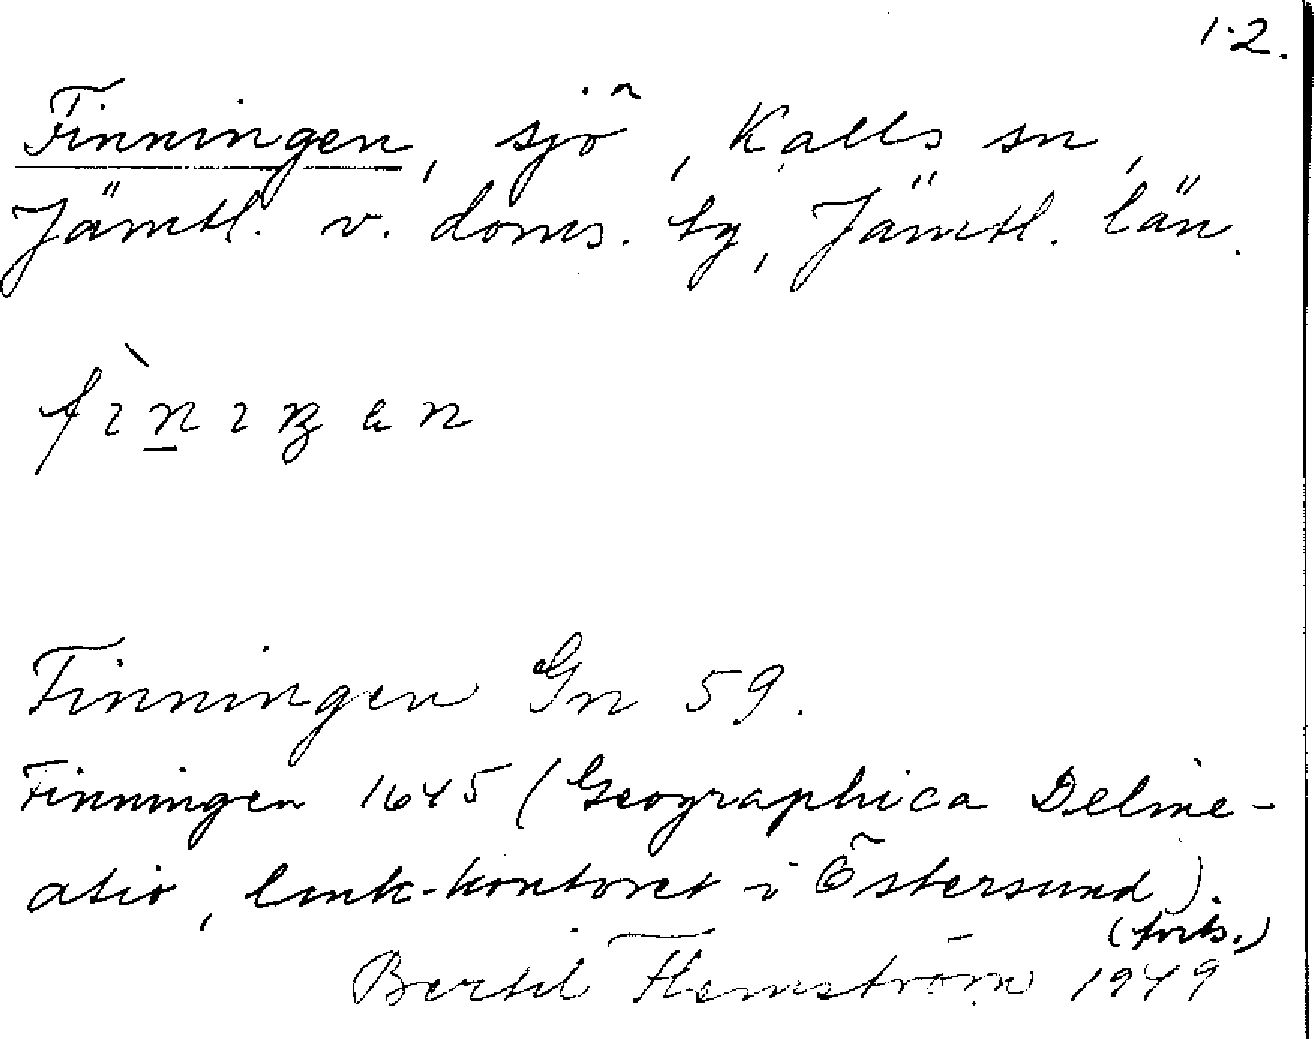 1.2.
Finningen, sjö, Kalls sn,
Jämtl. v. doms. tg, Jämtl. län.
fìnıŋen
Finningen Gn 59.
Finningen 1645 (Geographica Deline-
atio, lmk-kontoret i Östersund).
(forts.)
Bertil Flemström 1949